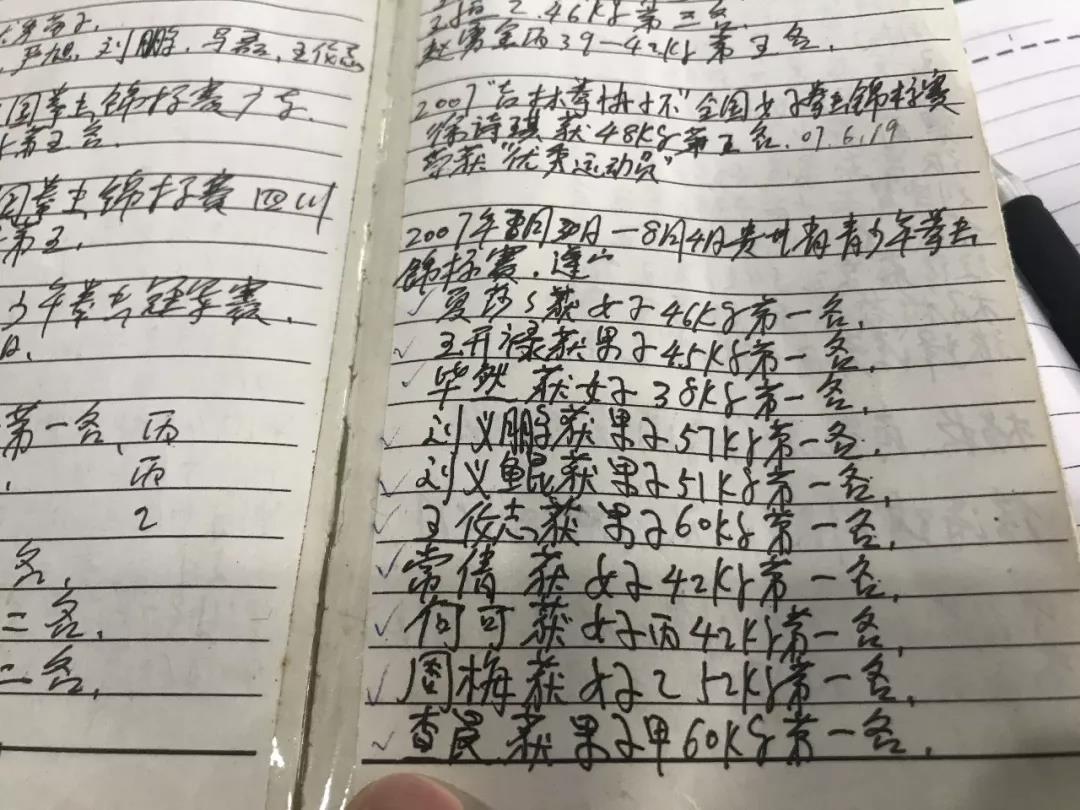 严旭，刘鹏，马磊，王俊志
国拳击锦标赛广东．
第五名．
国拳击锦标赛四川
第五．
少年拳击冠军赛．
第一名，丙
丙
乙
名．
二名．
二名．
乙．46Kg第三名
赵勇全丙39-42Kg第五名．
2007"吉林拳协杯"全国女子拳击锦标赛
徐诗琪获48Kg第五名．07.6.19
荣获"优秀运动员"
2007年 月 日一8月4日贵州省青少年拳击
锦标赛．
夏莎莎获女子46Kg第一名．
王开禄获男子45Kg第一名．
毕然获女子38Kg第一名．
刘义鹏获男子57Kg第一名．
刘义鲲获男子51Kg第一名．
王俊志获男子60Kg第一名．
常倩获女子42Kg第一名．
何可获女子丙42Kg第一名．
周梅获女子乙52Kg第一名．
获男子甲60Kg第一名．